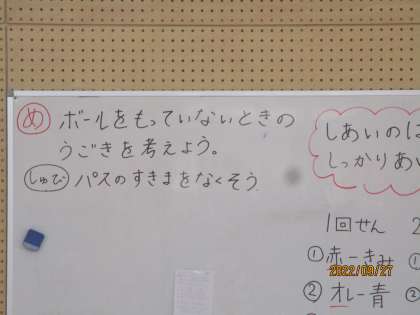 め ボールをもっていないときの
うごきを考えよう。
しゅび パスのすきまをなくそう
しあいの
しっかりあい
1回せん 2
①赤ーきみ ①
②オレー青 ②
2022/09/27